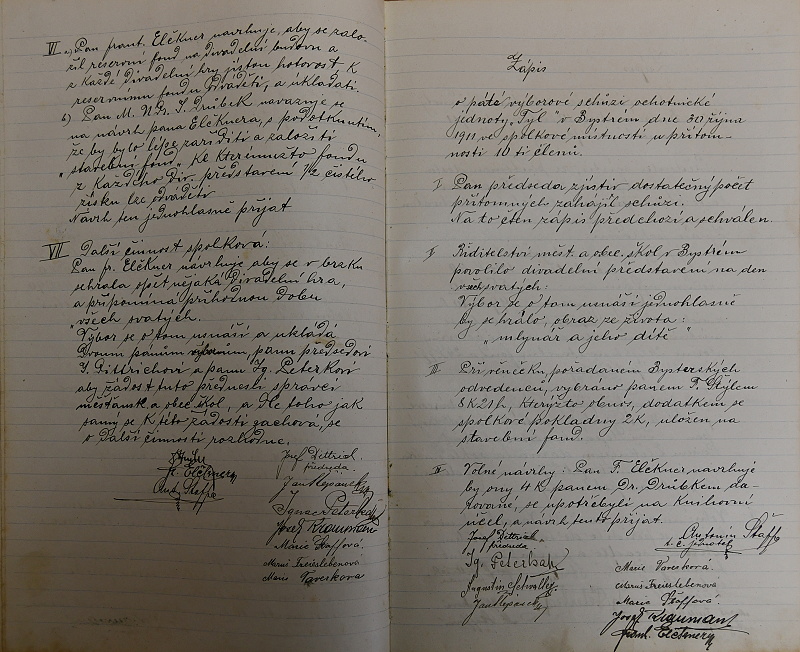 VI a) Pan frant. Elčkner navrhuje, aby se zalo-
žil reservní fond na divadelní budovu a
z každé divadelní hry jistou hotovost k
reservnímu fondu odváděti, a ukládati.
b) Pan M. N. Dr. J. Drůbek navazuje se
na návrh pana Elčknera, s podotknutím,
že by bylo lépe zaříditi a založiti
"stavební fond" ke kterémužto fondu
z každého div. představení, 1/2 čistého
zisku lze odváděti
Návrh ten jednohlasně přijat
VII Další činnost spolková:
Pan fr. Elčkner navrhuje aby se v brzku
sehrála opět nějaká divadelní hra,
a připomíná příhodnou dobu
"všech svatých.
Výbor se o tom usnáší a ukládá
dvoum pánům, panu předsedovi
J. Dittrichovi a panu Ig. Peterkovi
aby žádost tuto přednesli správci
měšťansk. a obec. škol, a dle toho jak
samý se k této žádosti zachová, se
o další činnosti rozhodne.
Fr. Elčknery
Ant. Štefla
Josef Dittrich
předseda
Jan Klepánek
Ignác Peterka
Josef Kraumann
Marie Štaffová
Marie Freieslebenova
Marie Vareckova
Zápis
o páté výborové schůzi ochotnické
jednoty "Tyl" v Bystrém dne 30 října
1911 ve spolkové místnosti v přítom-
nosti 10 ti členů.
I. Pan předseda zjistiv dostatečný počet
přítomných zahájil schůzi.
Na to čten zápis předchozí a schválen.
II Řiditelství měšť. a obec. škol v Bystrém
povolilo divadelní představení na den
všech svatých:
Výbor se o tom usnáší jednohlasně
by se hrálo, obraz ze života:
"mlynář a jeho dítě"
III Při věnečku pořádaném Bysterských
odvedenců, vybráno panem F. Štýlem
8 K 21 h, kterýžto obnos, dodatkem se
spolkové pokladny 2K, uložen na
stavební fond.
IV Volné návrhy: Pan F. Elčkner navrhuje
by ony 4 K panem Dr. Drůbkem da-
rované, se upotřebyli na knihovní
účel, a návrh tento přijat.
Josef Dittrich
předseda
Ig. Peterka
Augustin
Jan Klepánek
Antonín Štaff
t. č. jednatel
Marie Varecková
Marie Freieslebenová
Marie Štaffová.
Josef Kraumann
frant. Elčknery